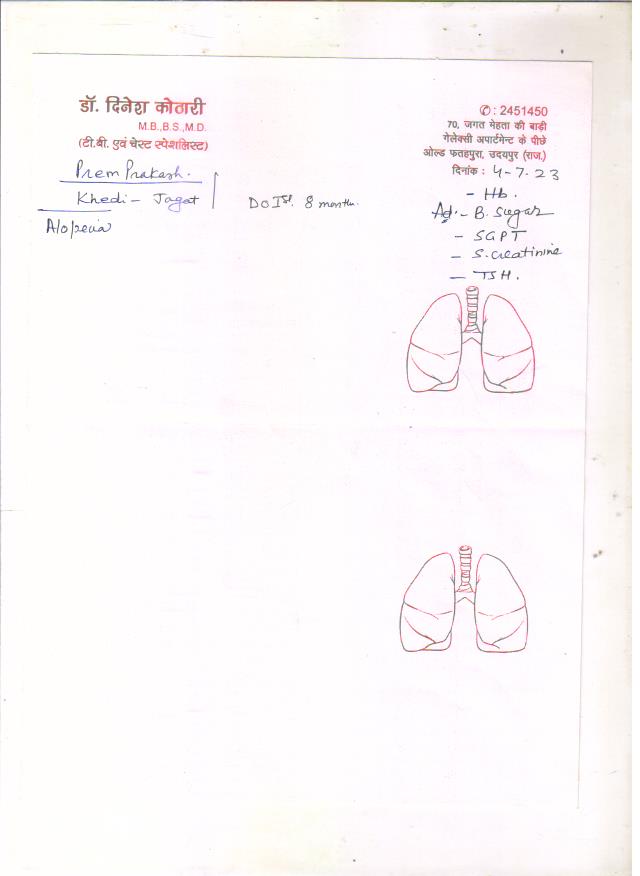 डॉ. दिनेश कोठारी
M.B.,B.S.,M.D.
(टी.बी. एवं चेस्ट स्पेशलिस्ट)
✆ : 2451450
70, जगत मेहता की बाड़ी
गेलेक्सी अपार्टमेन्ट के पीछे
ओल्ड फतहपुरा, उदयपुर (राज.)
दिनांक : 4-7-23
Prem Prakash.
Khedi - Jagat
A/o/pecia
DOI 8 months.
- Hb.
Ad. - B. Sugar
- SGPT
- S. Creatinine
- TSH.